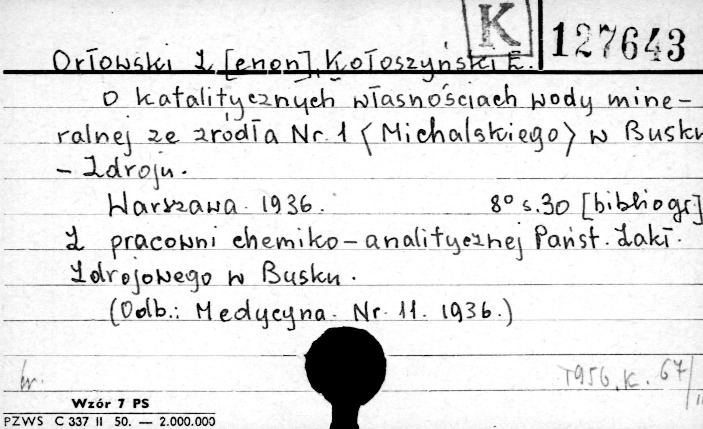 K 127643
Orłowski Z [enon], Kołoszyński E.
O katalitycznych własnościach wody mine-
ralnej ze źródła Nr. 1 (Michalskiego) w Busku
- Zdroju.
Warszawa. 1936. 8° s. 30 [bibliogr]
Z pracowni chemiko-analitycznej Państ. Zakł.
Zdrojowego w Busku.
(Odb.: Medycyna. Nr. 11. 1936.)
1956. K. 67/
Wzór 7 PS
PZWS C 337 II 50. — 2.000.000